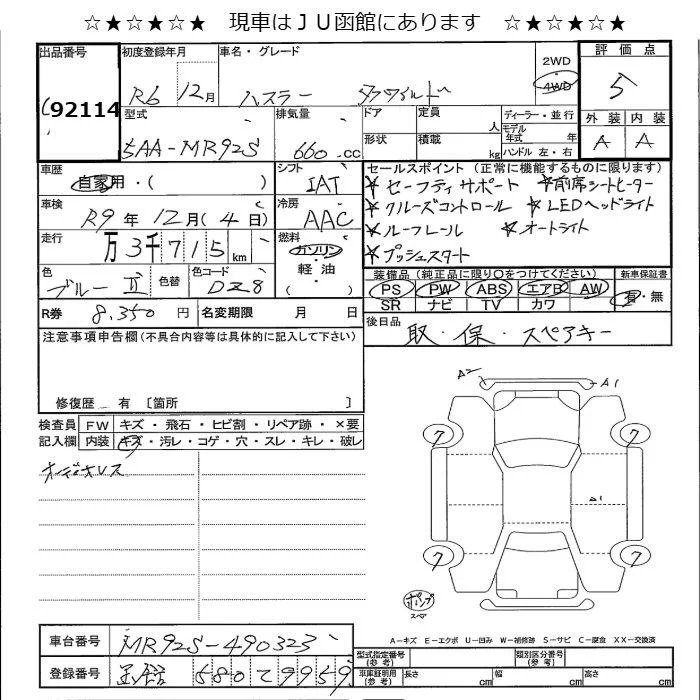 ☆★☆★☆★ 現車はＪＵ函館にあります ☆★☆★☆★
出品番号 初度登録年月 車名・グレード 2WD 評価点
92114 R6 12月 ハスラー 4WD 5
型式 排気量 ドア 定員 人 ディーラー・並行 外装 内装
5AA-MR92S 660 .CC 形状 積載 kg モデル年式 年 A A
ハンドル 左・右
車歴 シフト セールスポイント（正常に機能するものに限ります）
自家用・( ) IAT ★セーフティサポート ★前席シートヒーター
車検 冷房 ★クルーズコントロール ★LEDヘッドライト
R9年 12月(4日) AAC ★ルーフレール ★オートライト
走行 燃料 ★プッシュスタート
万3千715km ガソリン・軽油・( )
装備品（純正品に限り○をつけてください） 新車保証書
色 色替 色コード PS PW ABS エアB AW 有・無
ブルーⅡ DZ8 SR ナビ TV カワ
R券 8.350円 名変期限 月 日 後日品
取・保・スペアキー
注意事項申告欄(不具合内容等は具体的に記入して下さい)
修復歴 有 〔箇所 〕
検査員 FW キズ・飛石・ヒビ割・リペア跡・×要
記入欄 内装 キズ・汚レ・コゲ・穴・スレ・キレ・破レ
オーディオレス
A2 A1
7 7
A1
7 7
ポンプ
スペ
A－キズ E－エクボ U－凹み W－補修跡 S－サビ C－腐食 XX－交換済
車台番号 MR92S-490323
登録番号 函館 580 て 9959
型式指定番号(参考) 類別区分番号(参考)
車庫証明用(参考) 長さ cm 幅 cm 高さ cm